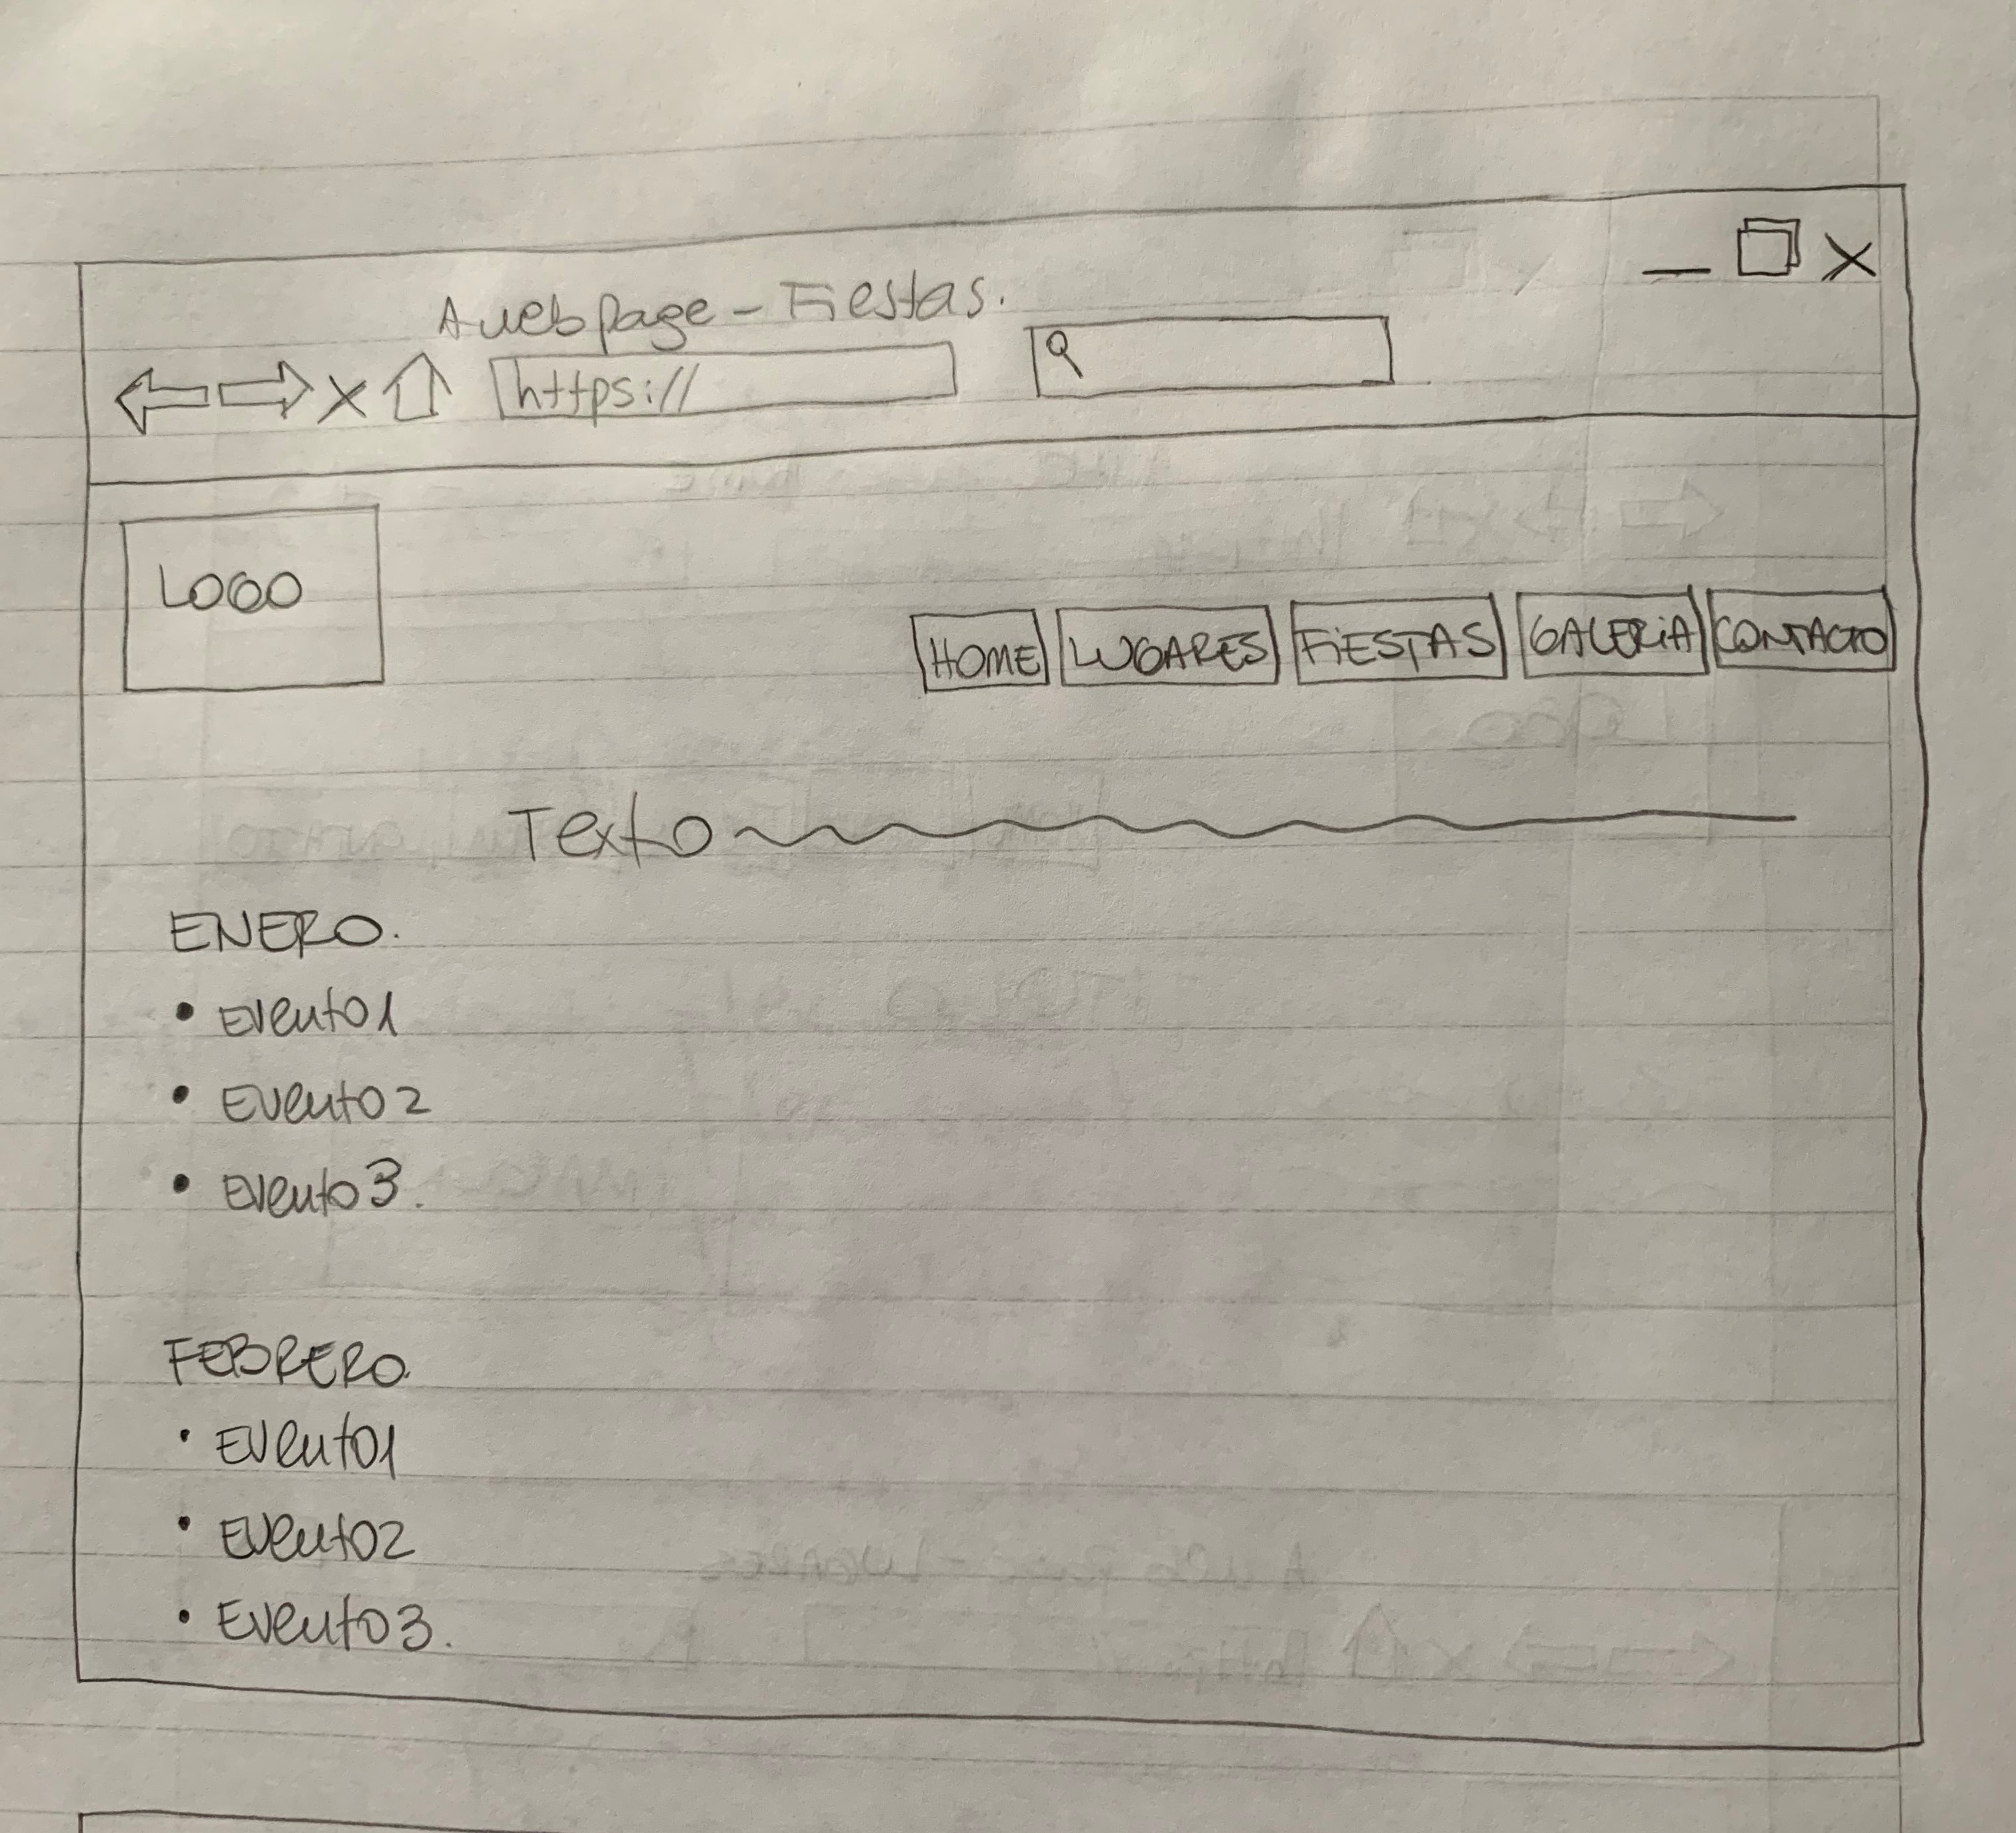 A web page - Fiestas.
https://
LOGO
HOME LUGARES FIESTAS GALERIA CONTACTO
Texto
ENERO.
• Evento1
• Evento2
• Evento3.
FEBRERO.
• Evento1
• Evento2
• Evento3.